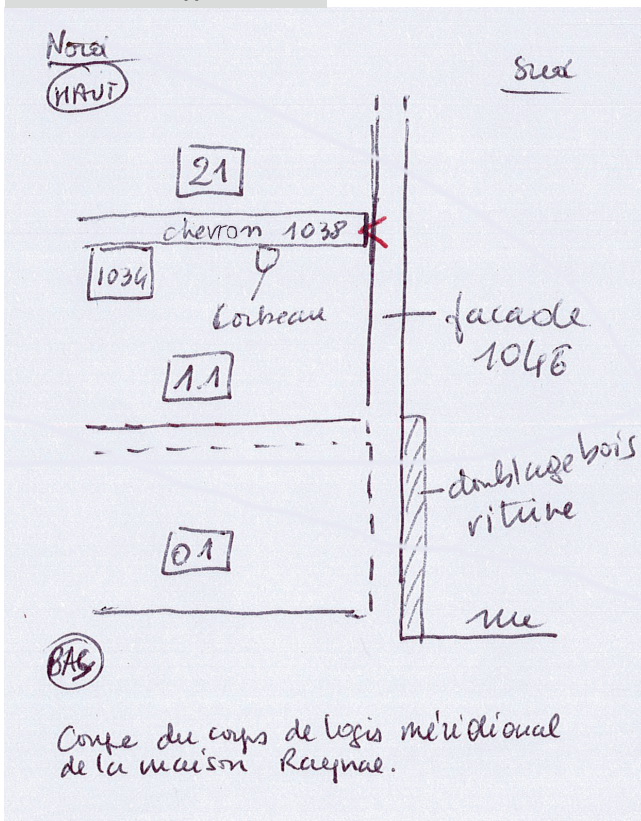 Nord
Sud
HAUT
21
chevron 1038
1034
Corbeau
façade
1046
11
doublage bois
vitrine
01
rue
BAS
Coupe du corps de logis méridional
de la maison Raynal.